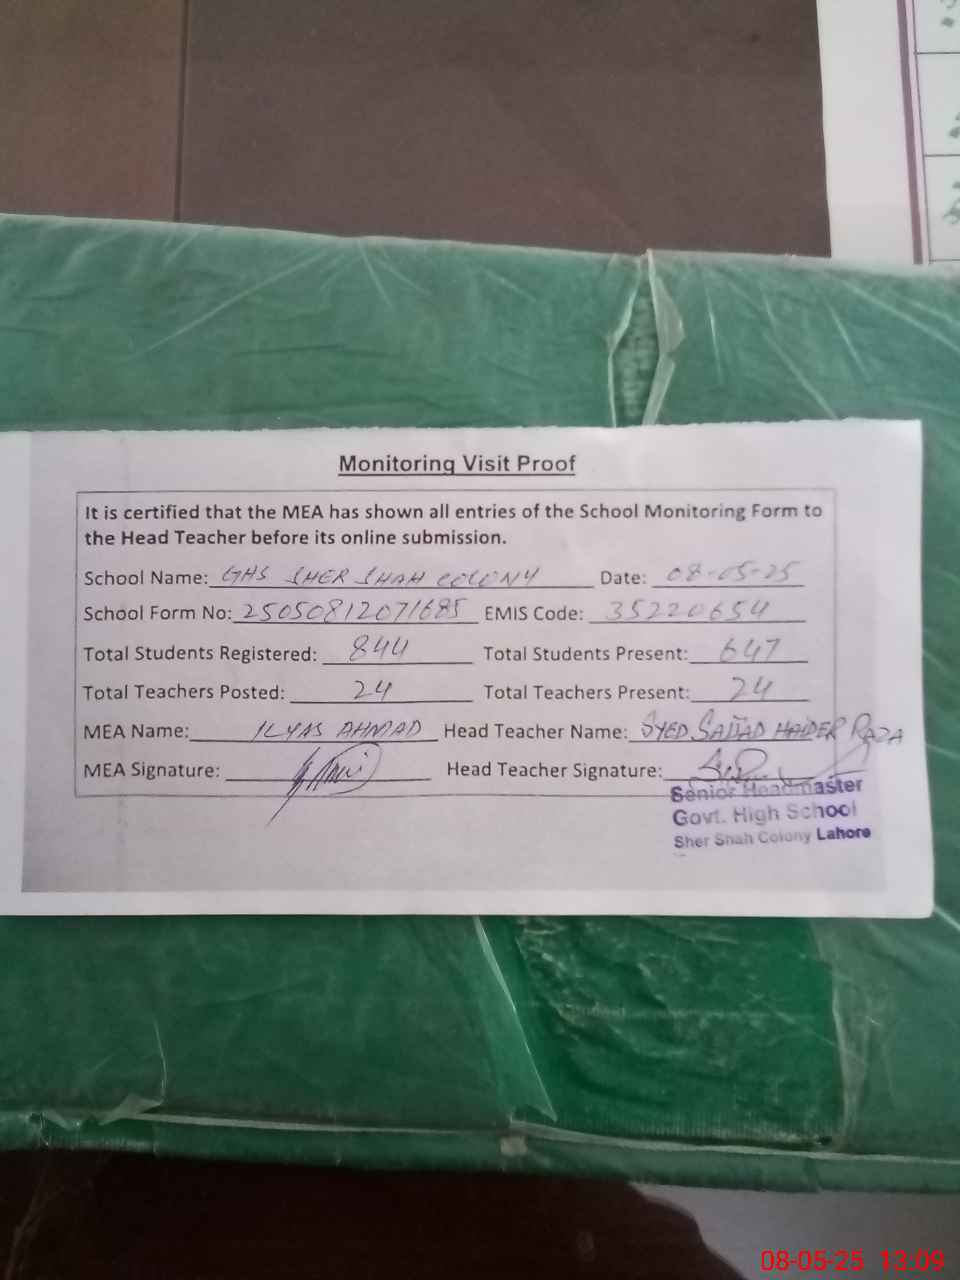 Monitoring Visit Proof
It is certified that the MEA has shown all entries of the School Monitoring Form to
the Head Teacher before its online submission.
School Name: GHS SHER SHAH COLONY Date: 08-05-25
School Form No: 25050812071685 EMIS Code: 35220654
Total Students Registered: 844 Total Students Present: 647
Total Teachers Posted: 24 Total Teachers Present: 24
MEA Name: ILYAS AHMAD Head Teacher Name: SYED SAJJAD HAIDER RAZA
MEA Signature: Head Teacher Signature:
Senior Headmaster
Govt. High School
Sher Shah Colony Lahore
08-05-25 13:09